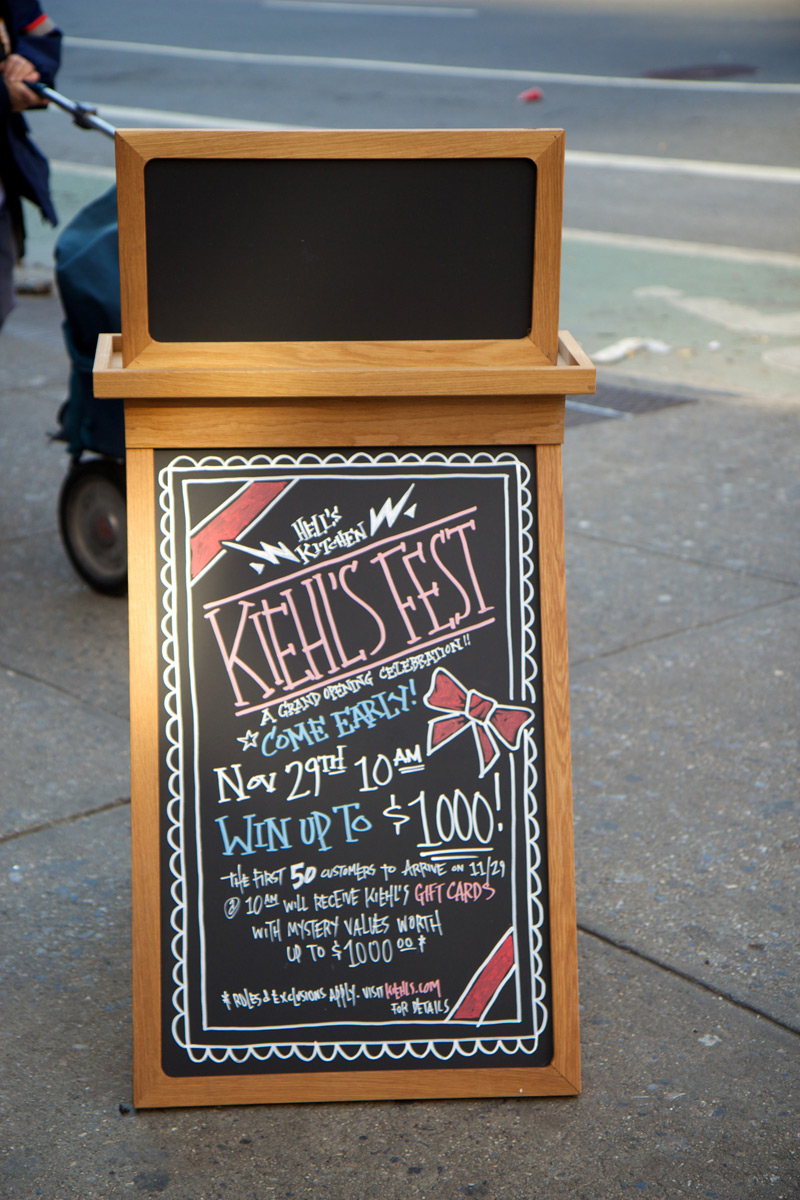 HELL'S
KITCHEN
KIEHL'S FEST
A GRAND OPENING CELEBRATION!!
COME EARLY!
NOV 29TH 10AM
WIN UP TO $1000!
THE FIRST 50 CUSTOMERS TO ARRIVE ON 11/29
@ 10AM WILL RECEIVE KIEHL'S GIFT CARDS
WITH MYSTERY VALUES WORTH
UP TO $1000.00*
*RULES & EXCLUSIONS APPLY. VISIT KIEHLS.COM
FOR DETAILS